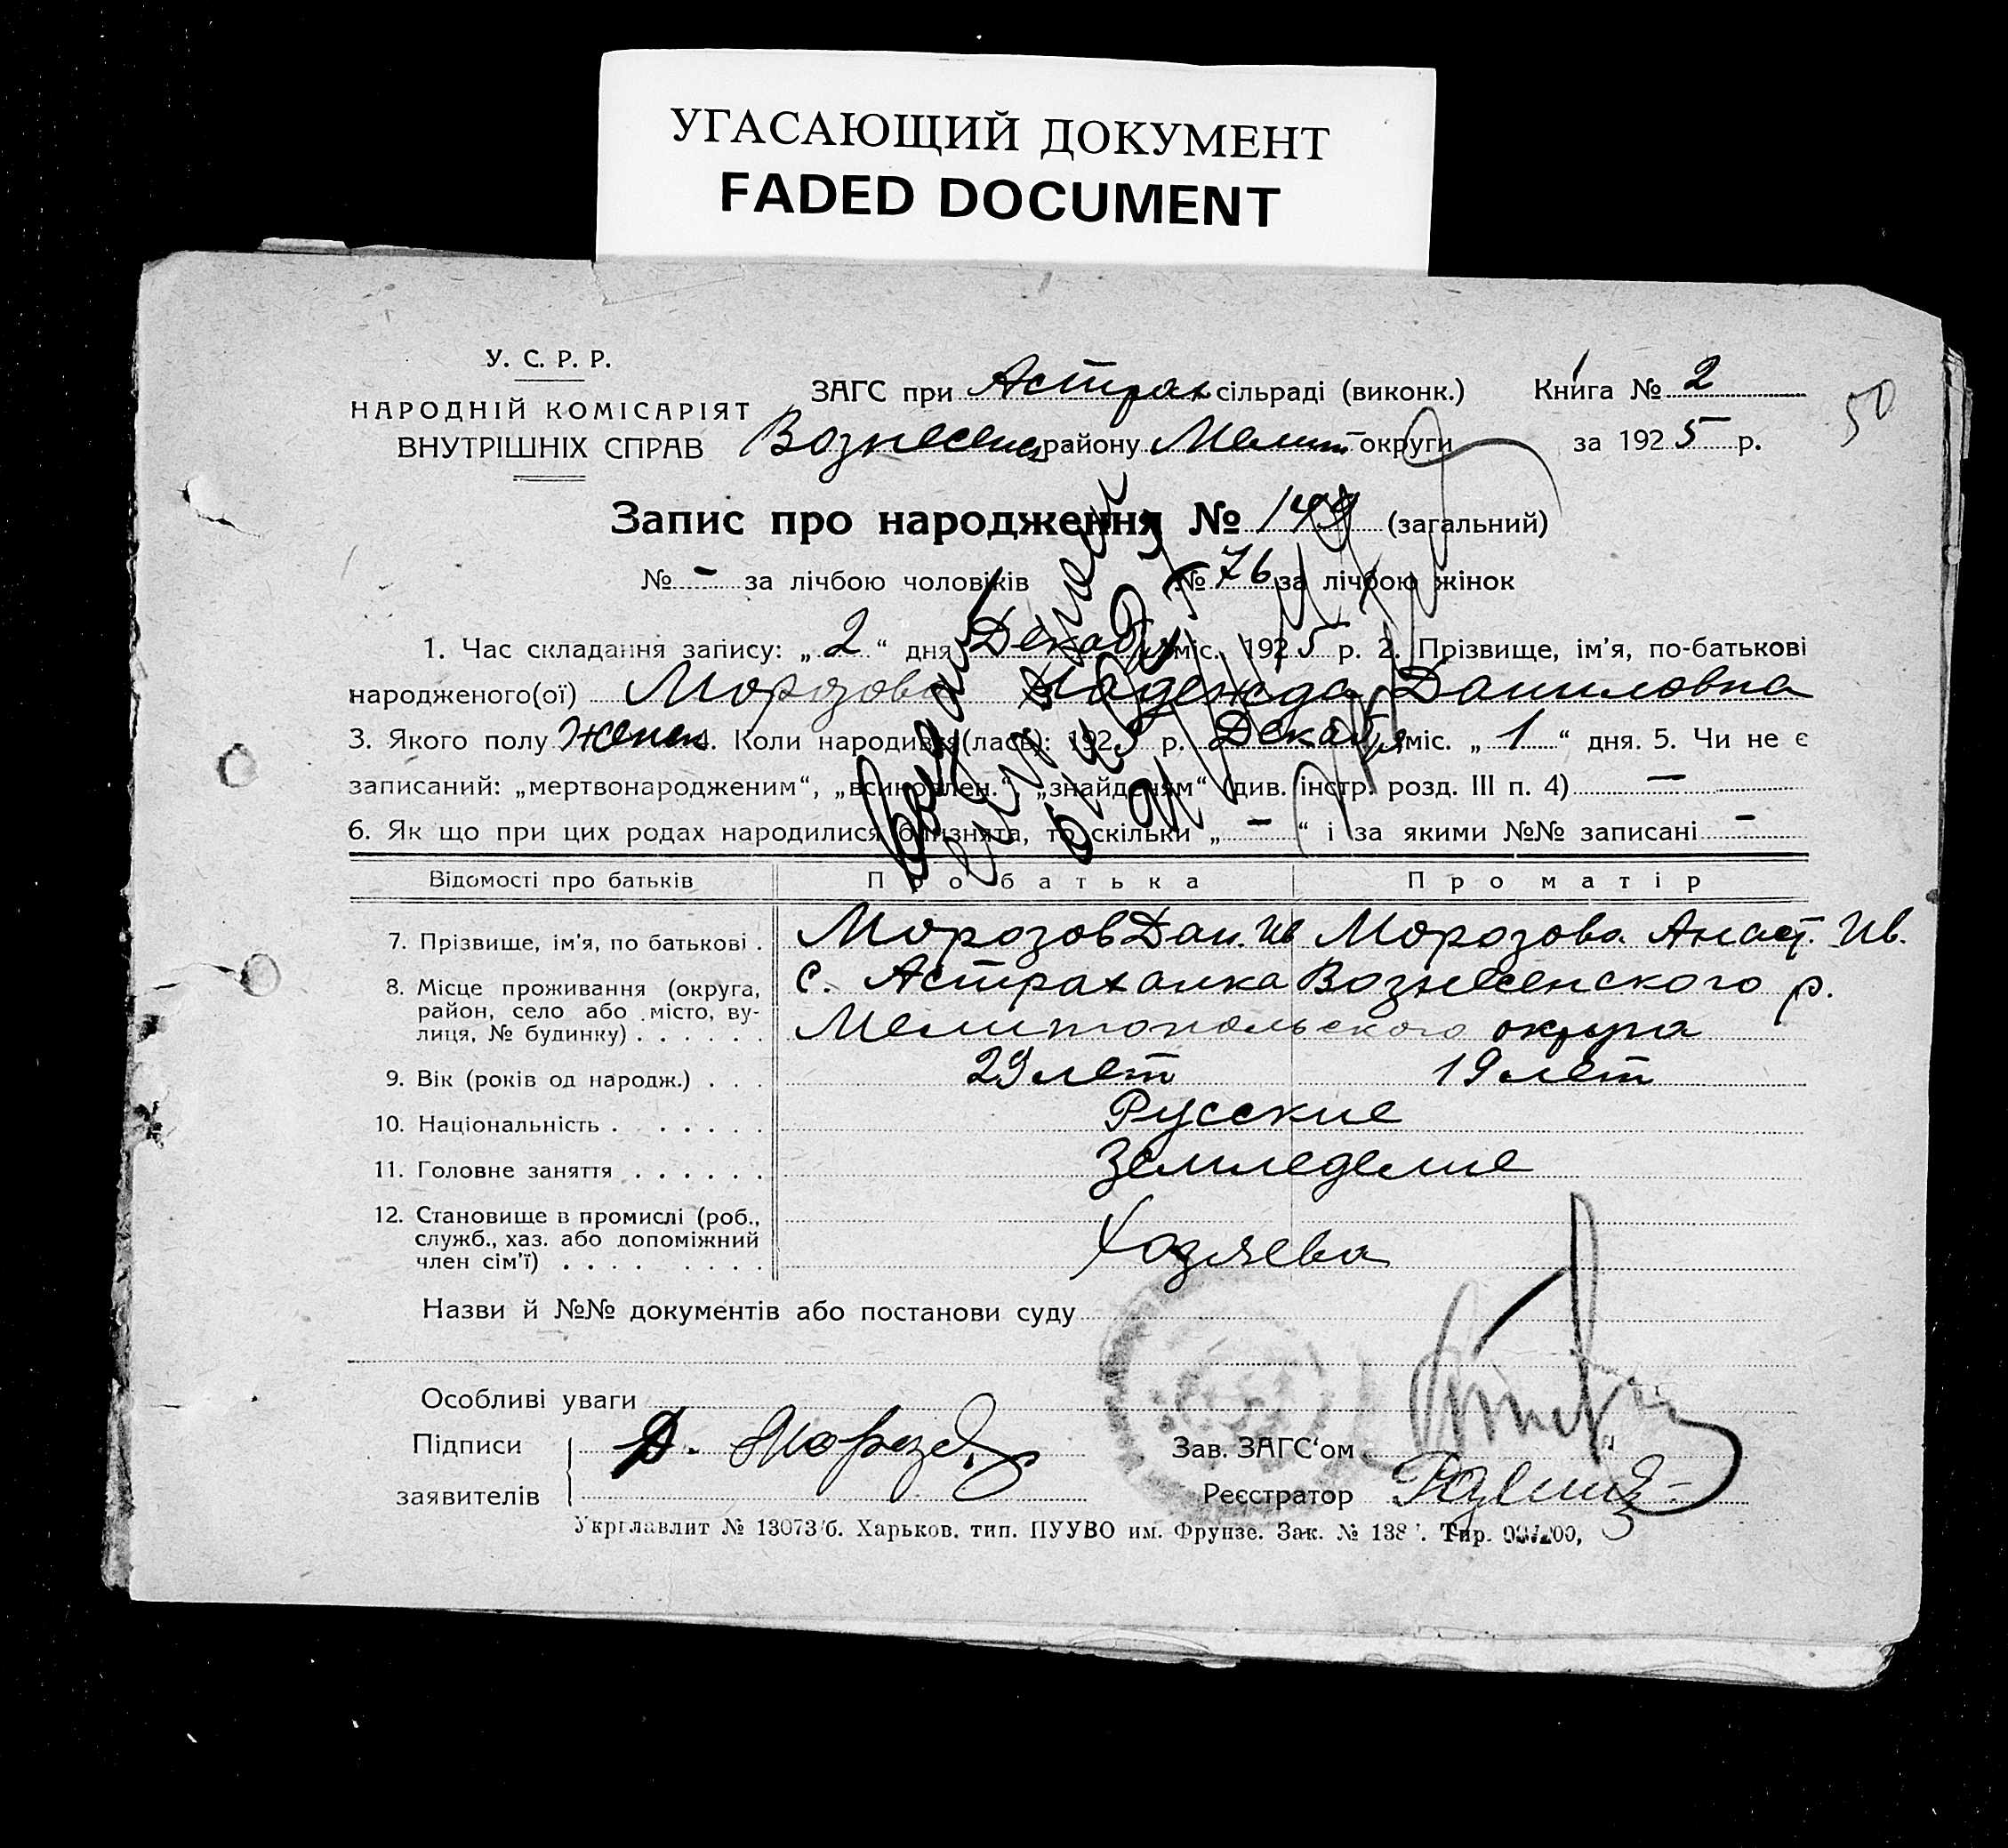 УГАСАЮЩИЙ ДОКУМЕНТ
FADED DOCUMENT
У. С. Р. Р.
НАРОДНІЙ КОМІСАРІЯТ
ВНУТРІШНІХ СПРАВ
ЗАГС при Астрах сільраді (виконк.) Книга № 2
50
Вознесенс району Мелит округи за 1925 р.
Запис про народження № 149 (загальний)
№ - за лічбою чоловіків № 76 за лічбою жінок
1. Час складання запису: „ 2 “ дня Декабря міс. 1925 р. 2. Прізвище, ім'я, по-батькові
народженого(ої) Морозова Надежда Даниловна
3. Якого полу Женск. Коли народився(лась): 1925 р. Декабря міс. „ 1 “ дня. 5. Чи не є
записаний: „мертвонародженим“, „всиновлен.“, „знайденям“ (див. інстр. розд. III п. 4) —
6. Як що при цих родах народилися близнята, то скільки „ — “ і за якими №№ записані -
Відомості про батьків Про батька Про матір
7. Прізвище, ім'я, по батькові . Морозов Дан. Ив Морозова Анаст. Ив.
8. Місце проживання (округа, с. Астраханка Вознесенского р.
район, село або місто, ву-
лиця, № будинку) . . . . . . Мелитопольского округа
9. Вік (років од народж.) . . . 29 лет 19 лет
10. Національність . . . . . . Русские
11. Головне заняття . . . . . . Земледелие
12. Становище в промислі (роб.,
служб., хаз. або допоміжний
член сім'ї) . . . . . . . . Хозяева
Назви й №№ документів або постанови суду
Особливі уваги
Підписи Д. Морозов Зав. ЗАГС'ом
заявителів Реєстратор
Укрглавлит № 13073/б. Харьков. тип. ПУУВО им. Фрунзе. Зак. № 138 Тир.